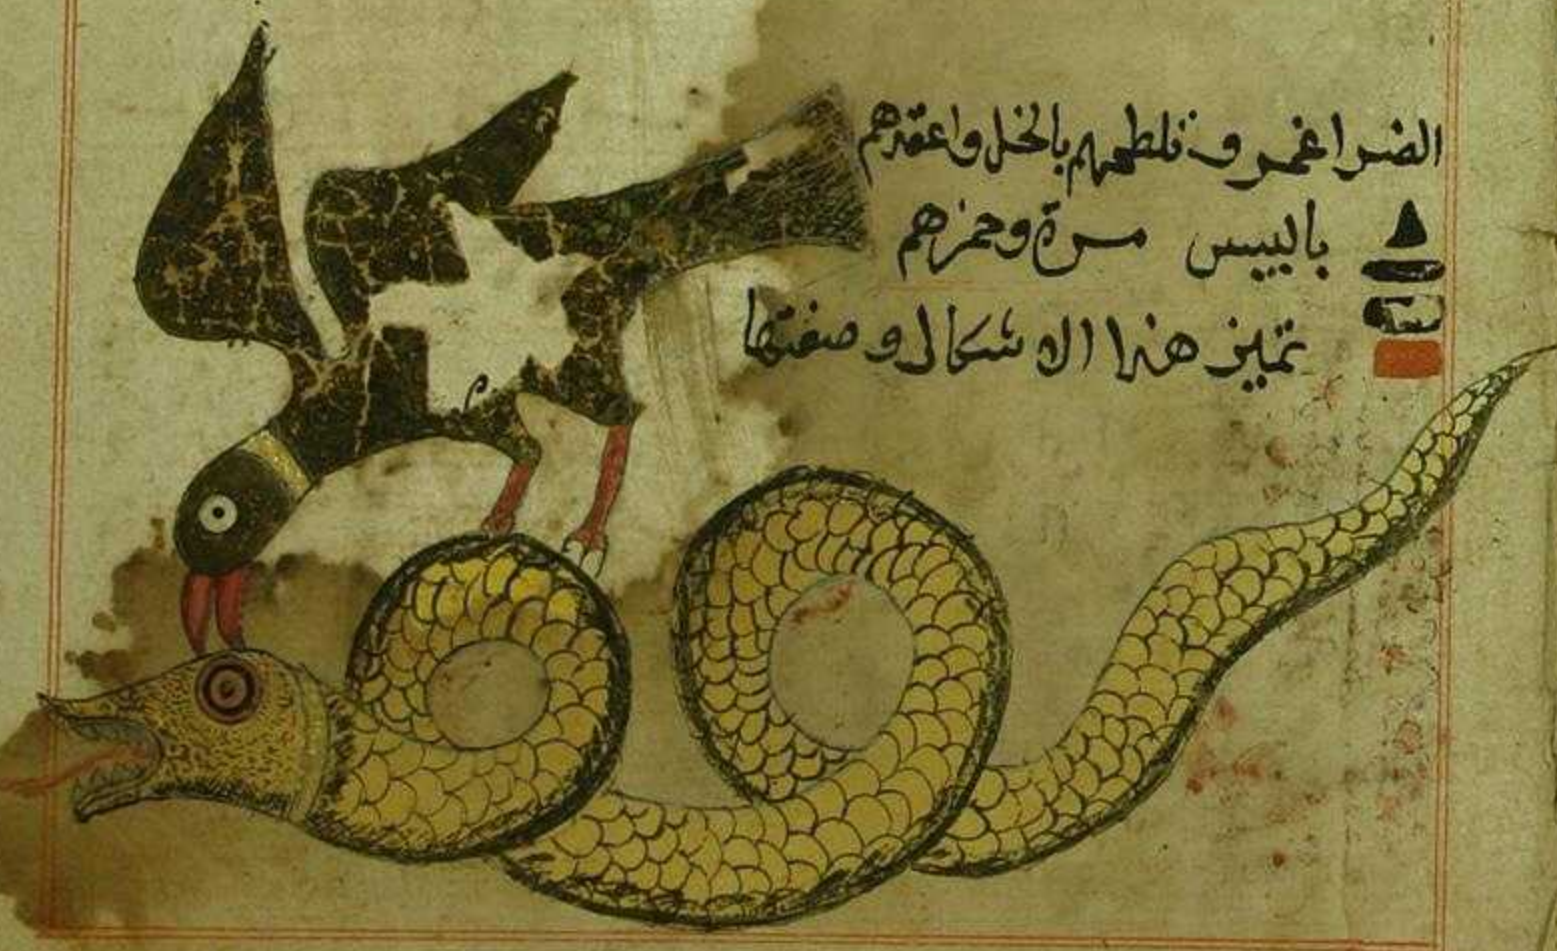 الضر اغمر و فلطمهم بالخل واعقدهم
باليبس مرة وحمزهم
تميز هذا الاشكال وصفتها